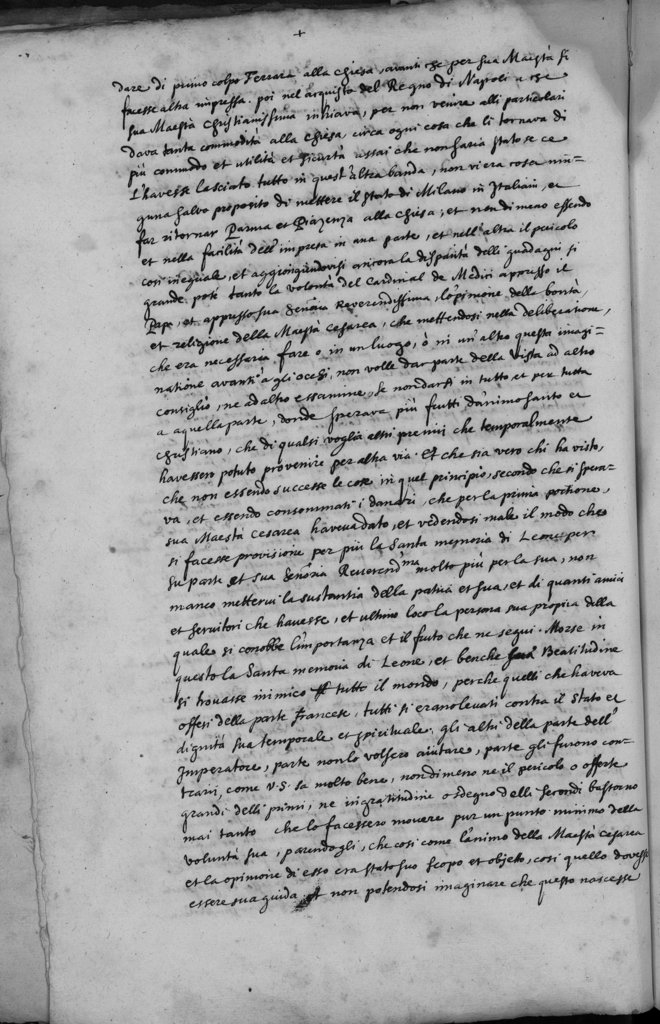 +
dare di primo colpo Ferrara alla Chiesa, avanti che per sua Maestà si
facesse altra impressa. poi nel acquisto del Regno di Napoli a che
sua Maestà Christianissima inchiava, per non venire alli particolari
dava tanta commodità alla Chiesa, circa ogni cosa che li tornava di
più commodo et utilità et sicurtà assai che non saria stato se ce
l'havesse lasciato tutto in quest'altra banda, non vi era cosa nin=
guna salvo proposito di mettere il stato di Milano in Italiani, et
far ritornar Parma et Piazenza alla Chiesa, et nondimeno essendo
et nella facilità dell'impresa in una parte, et nell'altra il pericolo
così ineguale, et aggiongiendovisi ancora la disparità delli guadagni si
grande, poté tanto la volontà del Cardinal de Medici appresso il
Papa, et appresso sua Signoria Reverendissima, l'opinione della bontà,
et religione della Maestà Cesarea, che mettendosi nella deliberatione,
che era necessaria fare o in un luogo, o in un'altro questa imagi=
natione avanti a gli occhi, non volle dar parte della vista ad altro
consiglio, ne ad altro essamine, se non darsi in tutto et per tutto
a quella parte, donde sperava più frutti d'animo santo et
christiano, che di qualsi voglia altri premii che temporalmente
havessero potuto provenire per altra via. Et che sia vero chi ha visto,
che non essendo successe le cose in quel principio, secondo che si spera=
va, et essendo consommati i danari, che per la prima portione,
sua Maestà Cesarea haveva dato, et vedendosi male il modo che
si facesse provisione per più la Santa memoria di Leone per
su parte et sua Signoria Reverendma molto più per la sua, non
manco mettervi la sustantia della patria et sua, et di quanti amici
et servitori che havesse, et ultimo loco la persona sua propria della
quale si conobbe l'importanza et il fruto che ne seguì. Morse in
questo la Santa memoria di Leone, et benche sua Beatitudine
si trovasse inimico tutto il mondo, perche quelli che haveva
offesi della parte Francese, tutti si erano levati contra il stato et
dignità sua temporale et spirituale. gli altri della parte dell'
Imperatore, parte non lo volsero aiutare, parte gli furono con=
trarii, come V.S. sa molto bene, nondimeno ne il pericolo o offerte
grandi delli primi, ne ingratitudine o sdegno delli secondi bastorno
mai tanto che lo facessero movere pur un punto minimo della
voluntà sua, parendogli, che così come l'animo della Maestà Cesarea
et la opinione di esso era stato suo scopo et objeto, così quello dovesse
essere sua guida et non potendosi imaginare che questo nascesse